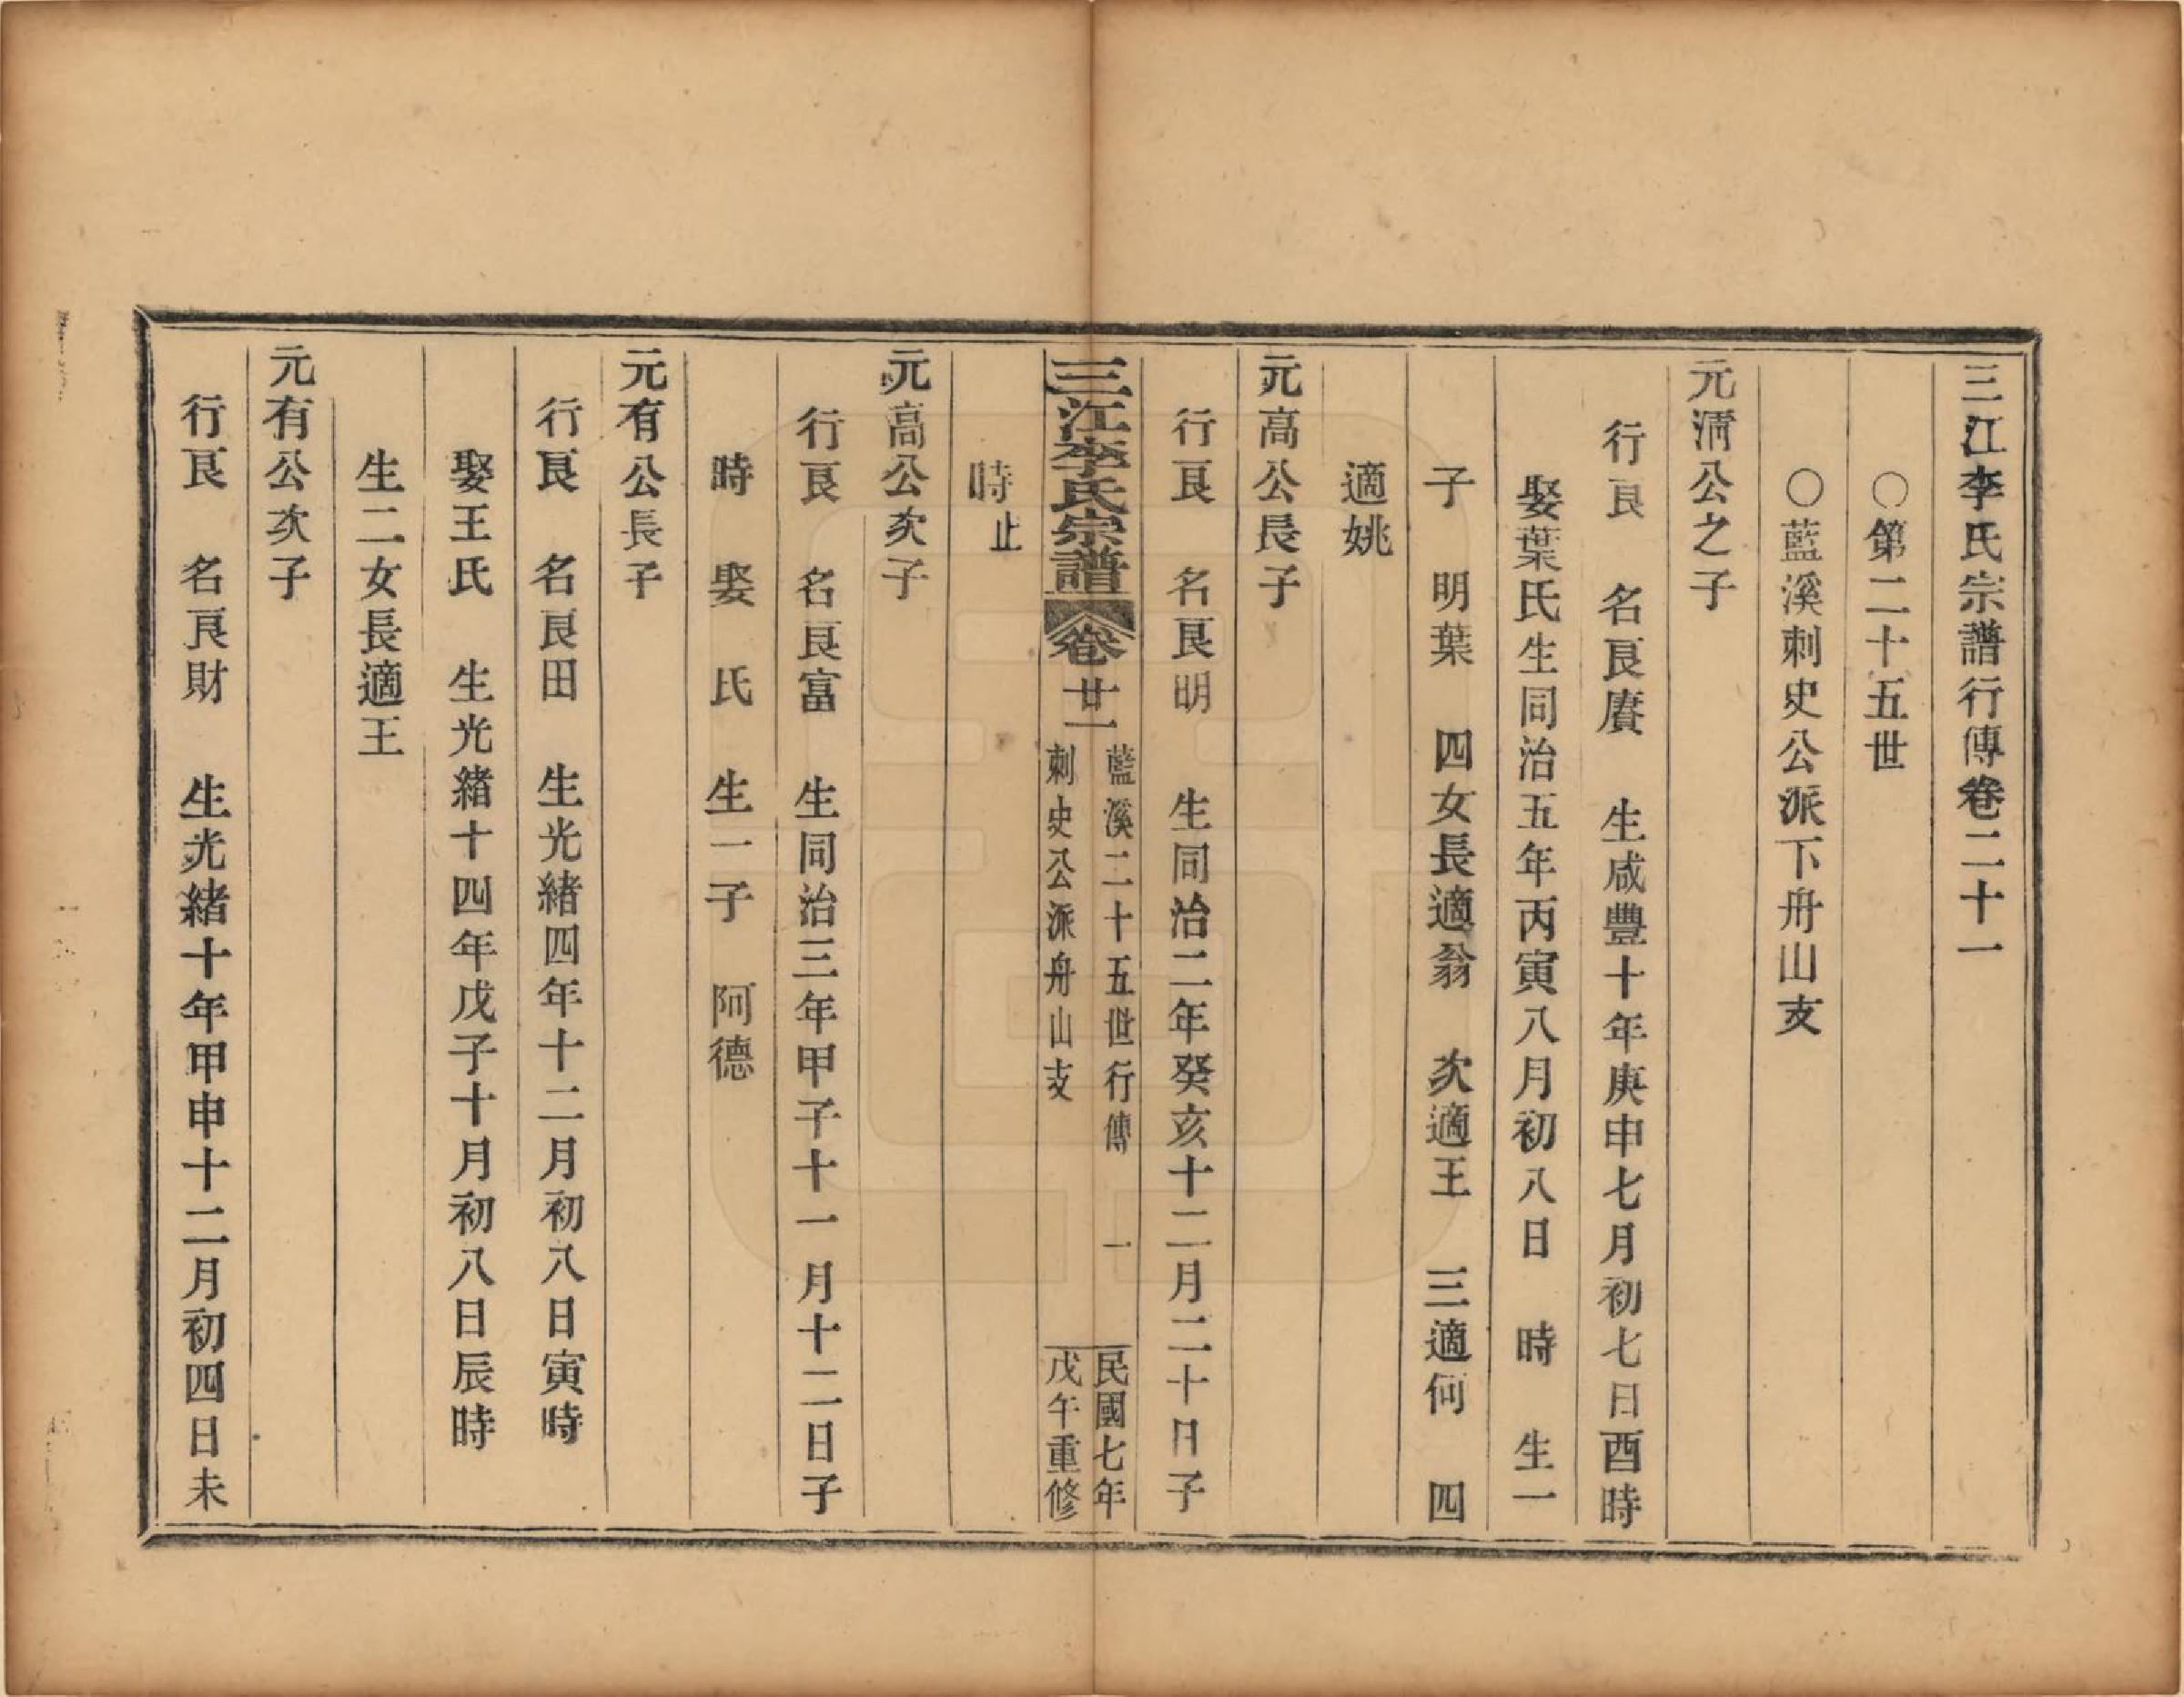 三江李氏宗譜行傳卷二十一
〇第二十五世
〇藍溪刺史公派下舟山支
元淸公之子
行良 名良賡 生咸豐十年庚申七月初七日酉時
娶葉氏生同治五年丙寅八月初八日 時 生一
子 明葉 四女長適翁 次適王 三適何 四
適姚
元高公長子
行良 名良明 生同治二年癸亥十二月二十日子
時止
三江李氏宗譜 卷廿一 藍溪二十五世行傳 一 民國七年
刺史公派舟山支 戊午重修
元高公次子
行良 名良富 生同治三年甲子十一月十二日子
時 娶 氏 生一子 阿德
元有公長子
行良 名良田 生光緒四年十二月初八日寅時
娶王氏 生光緒十四年戊子十月初八日辰時
生二女長適王
元有公次子
行良 名良財 生光緒十年甲申十二月初四日未